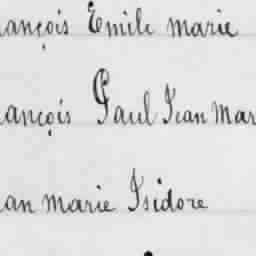 ançois Emile marie
ançois Paul Jean Mar
an marie Isidore